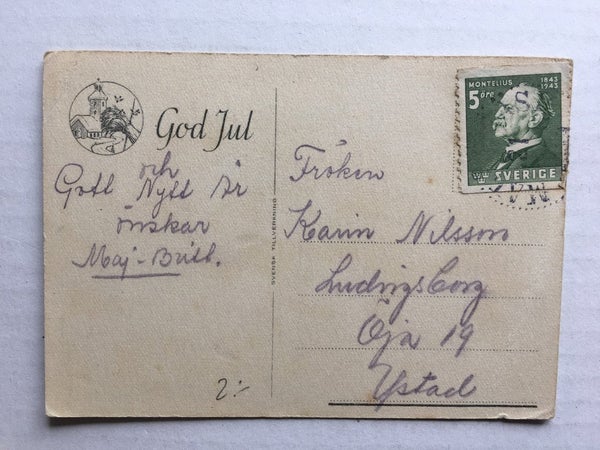 God Jul
och
Gott Nytt År
önskar
Maj-Britt.
2:-
SVENSK TILLVERKNING
MONTELIUS 1843
1943
5 öre
SVERIGE
Fröken
Karin Nilsson
Ludvigsborg
Öja 19
Ystad